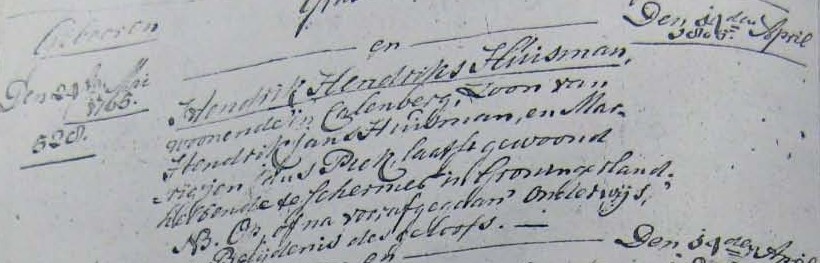 Geboren
Den 24ste Mei
1765.
528.
en
Den 14den April
1805.
Hendrik Hendriks Huisman,
woonende in Calenberg, Zoon van
Hendrik Jans Huisman, en Mar-
rigjen Piek, laatst gewoond
hebbende te Schermer in Groningerland.
NB. Op, of na voorafgegaan Onderwijs,
Belijdenis des Geloofs. —
en
Den 14den April